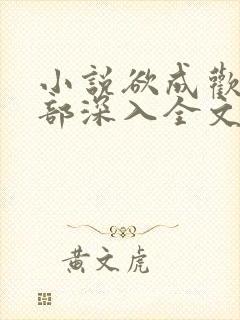 小說欲成歡
部深入全文
黃文虎